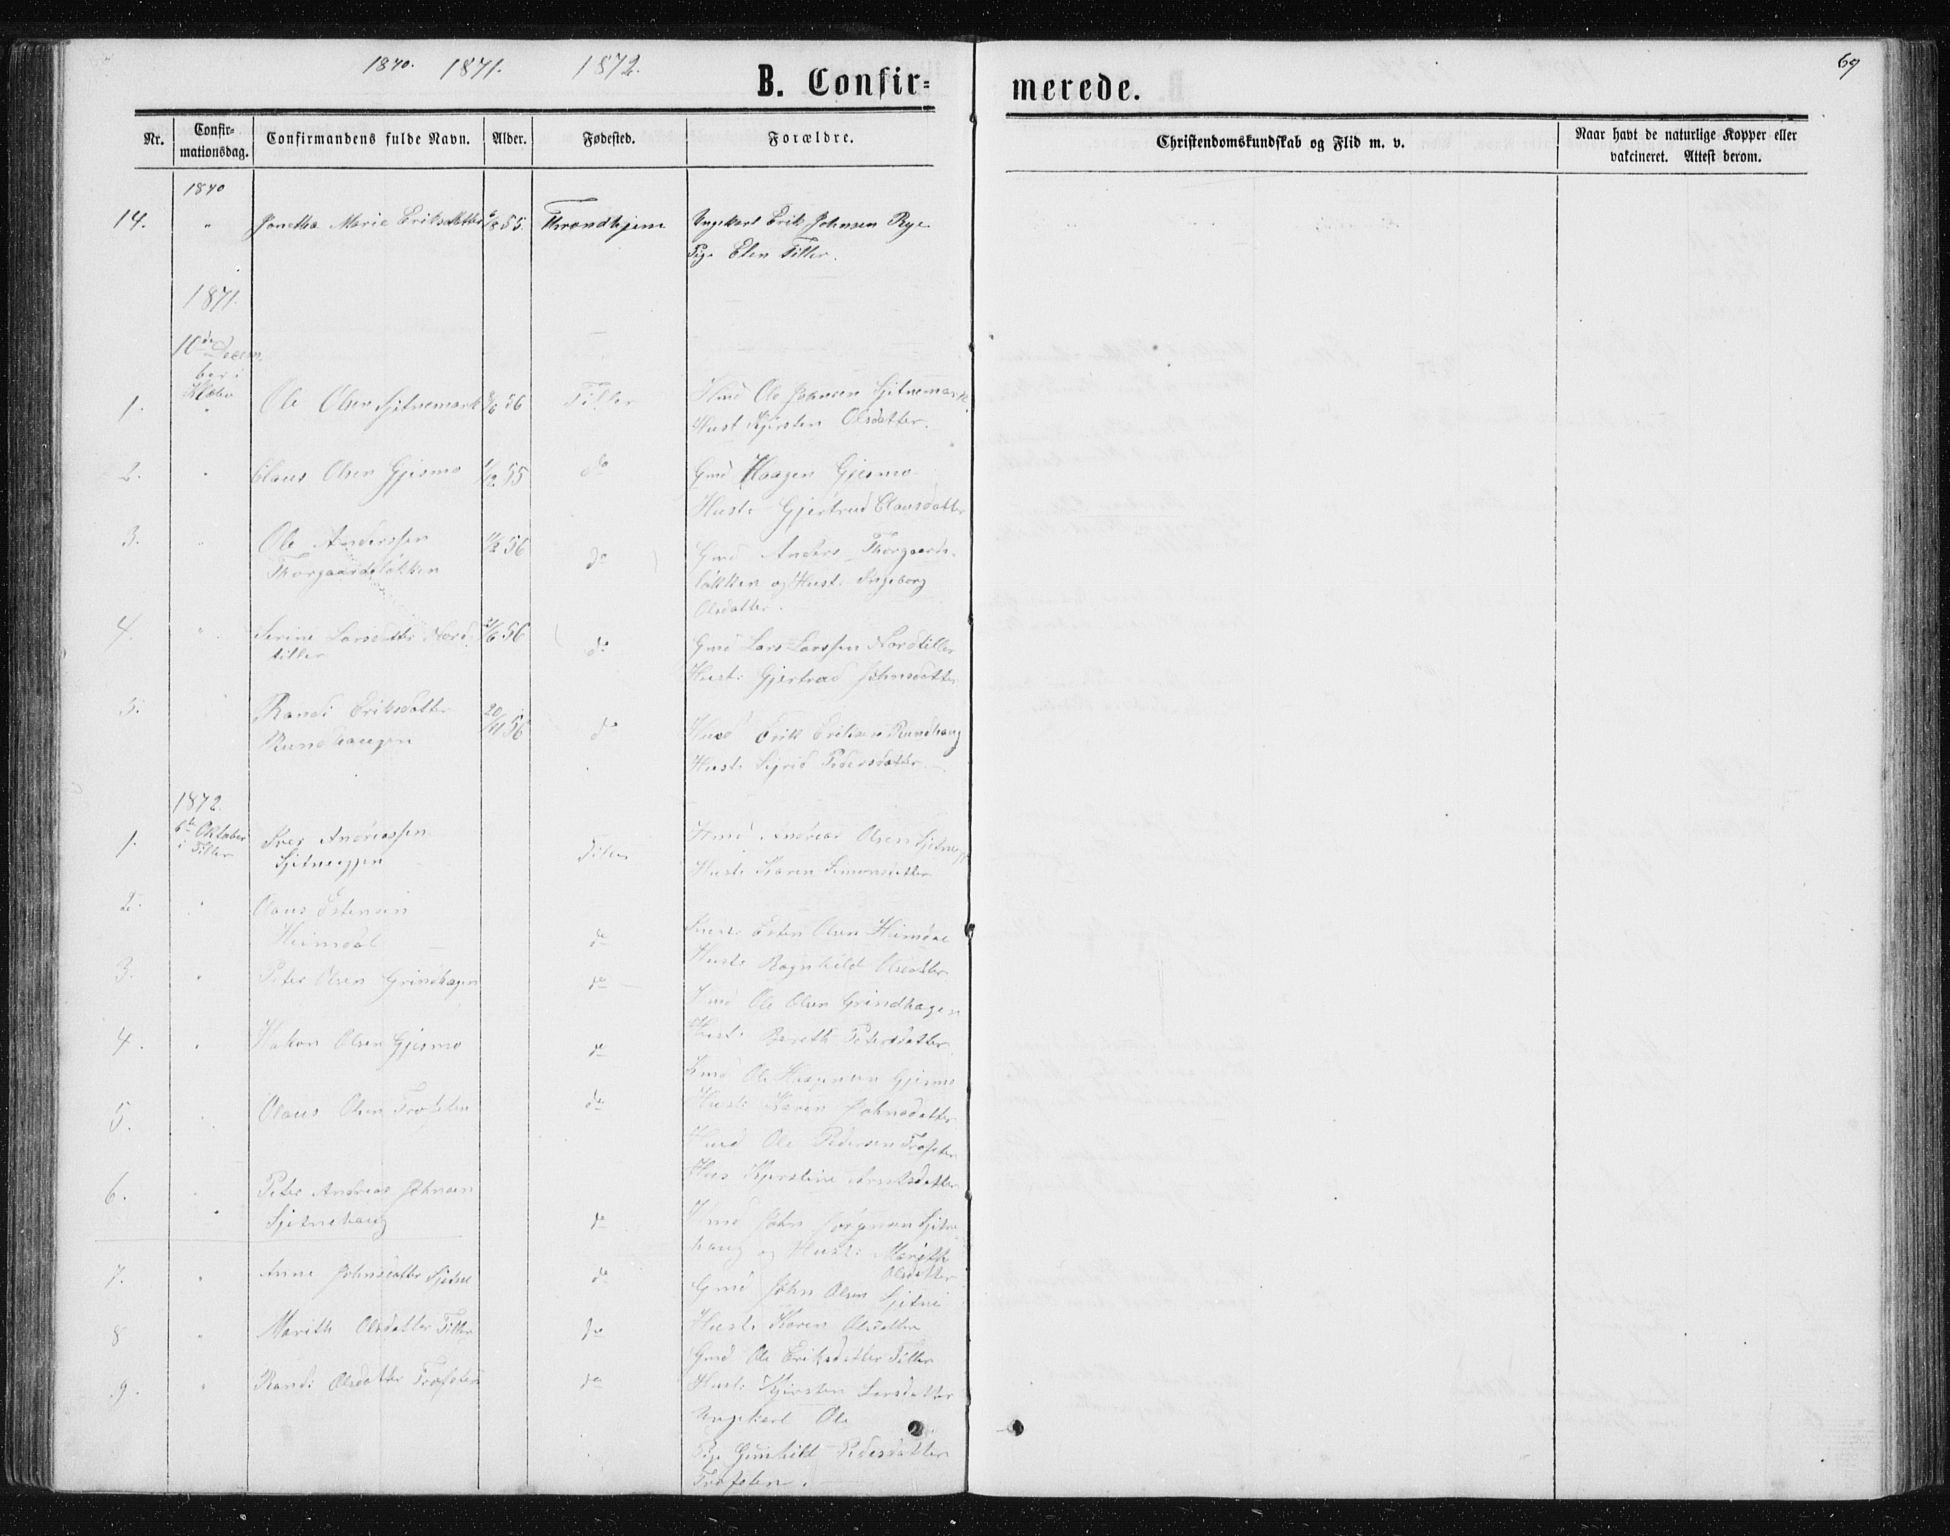 1870. 1871. 1872.
69
B. Confir=
merede.
Nr.
Confir-
mationsdag.
Confirmandens fulde Navn.
Alder.
Fødested.
Forældre.
Christendomskundskab og Flid m. v.
Naar havt de naturlige Kopper eller
vakcineret. Attest derom.
1870
14. " Jonetha Marie Eriksdatter 55. Throndhjem Ungekarl Erik Johnsen Rye
Pige Elen Tiller.
1871.
10de Decem
ber i
Klæbu
1. " Ole Olsen Sjetnemark 56 Tiller Hmd Ole Johnsen Sjetnemark
Hust Kjersten Olsdatter.
2. " Claus Olsen Gjesmo 55 do Gmd Haagen Gjesmo
Hust: Gjertrud Clausdatter
3. " Ole Anderssen 56 do Gmd Anders Thorgaards-
Thorgaardsløkken løkken og Hust: Ingeborg
Olsdatter.
4. " Serine Larsdatter Nord 56 do Gmd Lars Larssen Nordtiller
tiller Hust: Gjertrud Johnsdatter
5. " Randi Eriksdatter 20/11 56 do Husd Erik Eriksen Rundhaug
Rundhaugen Hust: Sigrid Pedersdatter.
1872.
6te Oktober
i Tiller
1. Andreassen Tiller Hmd Andreas Olsen
Hust: Karen Simonsdatter
2. " Claus Estensen
Heimdal do Esten Olsen Heimdal
Hust: Ragnhild Olsdatter
3. " Peter Olsen Grindhagen do Hmd Ole Olsen Grindhagen
Hust: Bereth Petersdatter
4. " Hakon Olsen Gjesmo do Ole Haagensen Gjesmo
Hust: Karen Johnsdatter
5. " Olaus Olsen Trøseten do Husd Ole Pedersen Trøseten
Hus Kjerstine Arntsdatter
6. " Peter Andreas Johnsen
Sjetnehaug do Hmd John Sjetne
haug og Hust: Marith
Olsdatter
7. " Anne Johnsdatter Sjetne do Gmd John Olsen Sjetne
Hust: Karen Olsdatter
8 " Marith Olsdatter Tiller do Gmd Ole Eriksdatter Tiller
Hust: Kjersten Larsdatter
9. " Randi Olsdatter Trøseten do Ungkarl Ole
Pige Gunhild Pedersdatter
Trøseten.